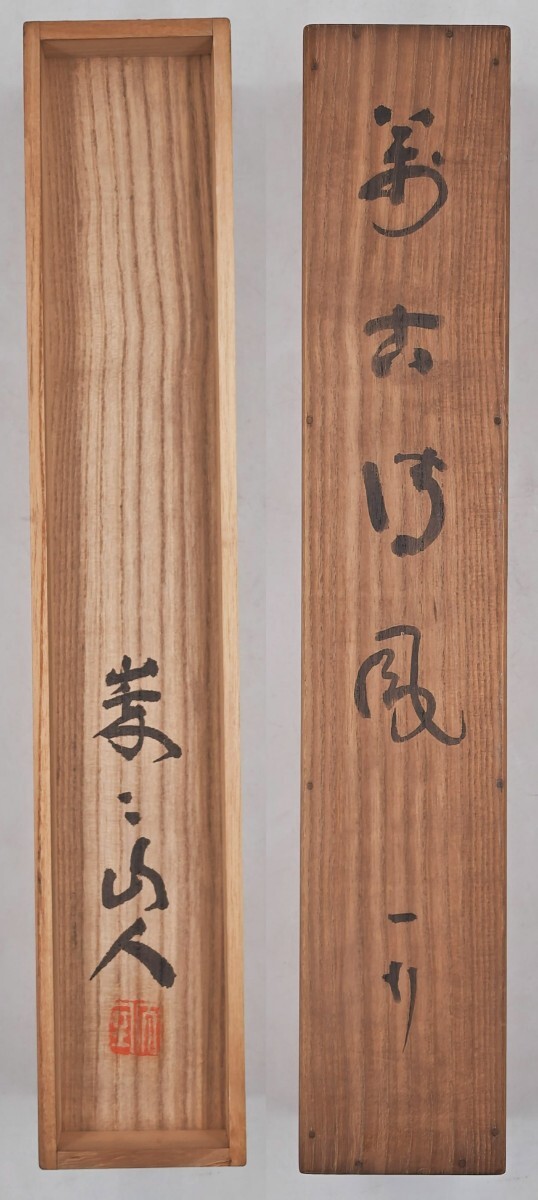 萬古清風 一行
々山人